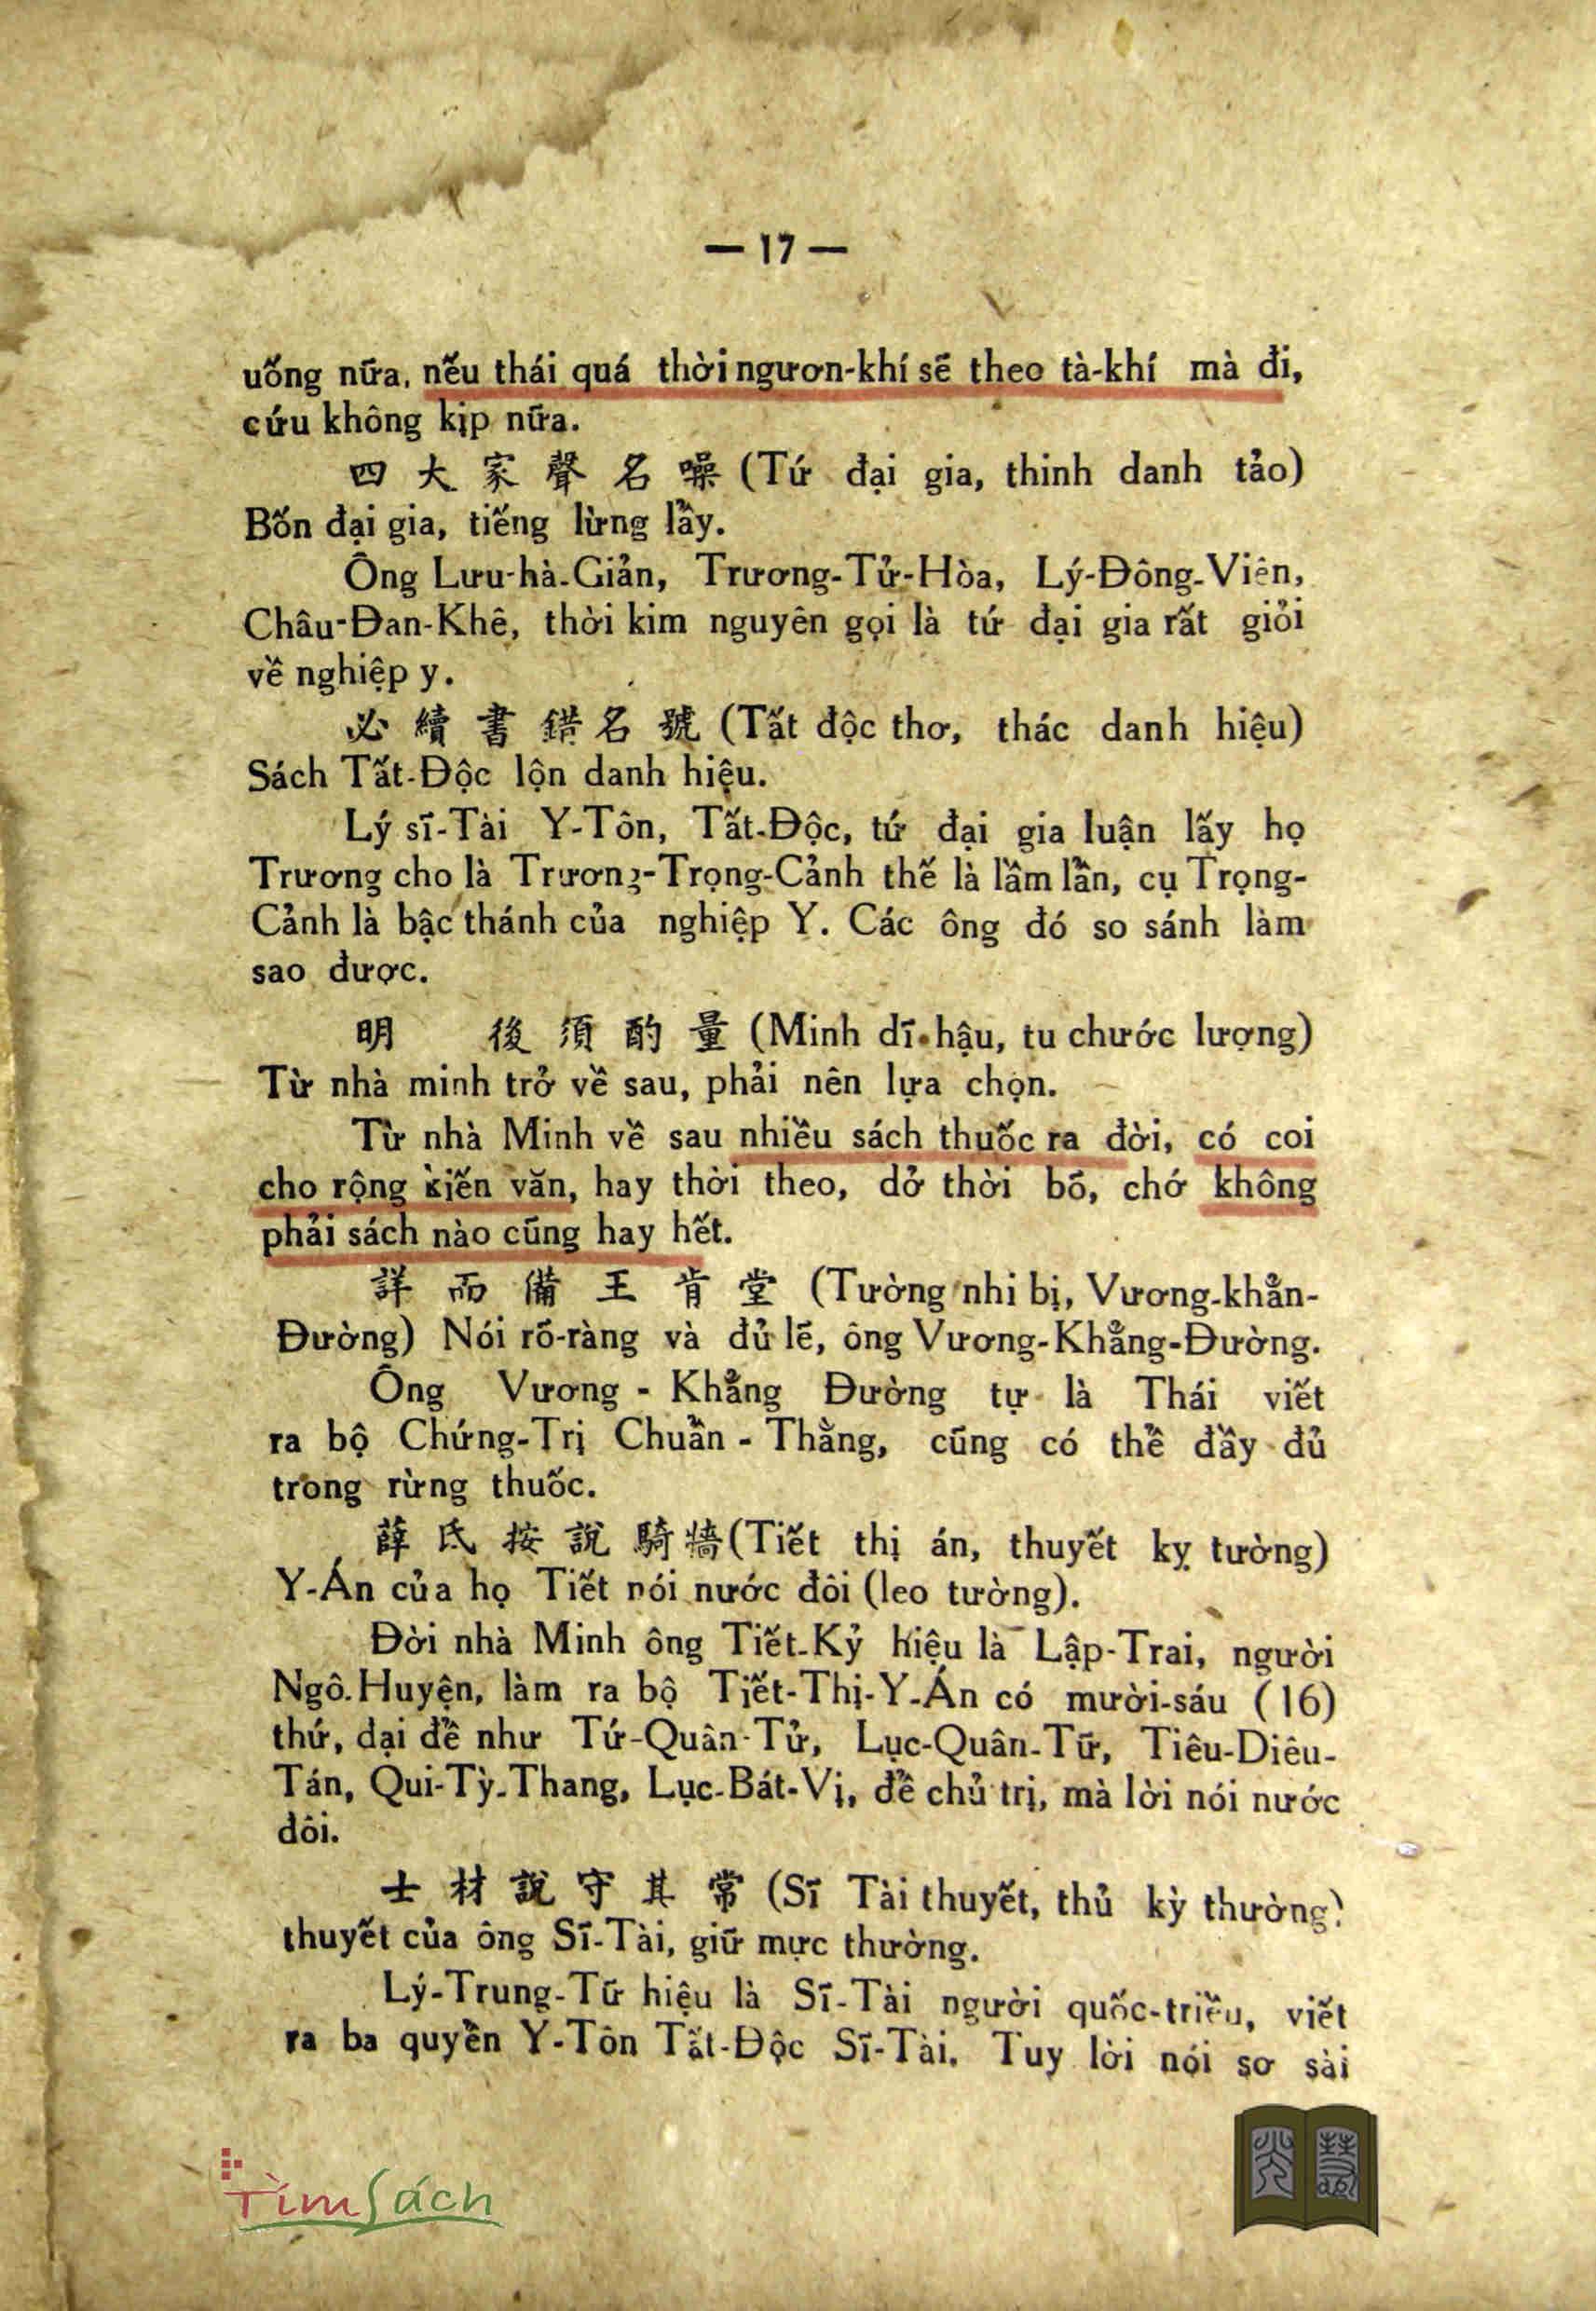 — 17 —
uống nữa, nếu thái quá thời ngươn-khí sẽ theo tà-khí mà đi,
cứu không kịp nữa.
四大家聲名噪 (Tứ đại gia, thinh danh tảo)
Bốn đại gia, tiếng lừng lẫy.
Ông Lưu-hà-Giản, Trương-Tử-Hòa, Lý-Đông-Viên,
Châu-Đan-Khê, thời kim nguyên gọi là tứ đại gia rất giỏi
về nghiệp y.
必續書錯名號 (Tất độc thơ, thác danh hiệu)
Sách Tất-Độc lộn danh hiệu.
Lý sĩ-Tài Y-Tôn, Tất-Độc, tứ đại gia luận lấy họ
Trương cho là Trương-Trọng-Cảnh thế là lầm lẫn, cụ Trọng-
Cảnh là bậc thánh của nghiệp Y. Các ông đó so sánh làm
sao được.
明 後須酌量 (Minh dĩ hậu, tu chước lượng)
Từ nhà minh trở về sau, phải nên lựa chọn.
Từ nhà Minh về sau nhiều sách thuốc ra đời, có coi
cho rộng kiến văn, hay thời theo, dở thời bỏ, chớ không
phải sách nào cũng hay hết.
詳而備王肯堂 (Tường nhi bị, Vương-khẳn-
Đường) Nói rõ-ràng và đủ lẽ, ông Vương-Khẳng-Đường.
Ông Vương - Khẳng Đường tự là Thái viết
ra bộ Chứng-Trị Chuẩn - Thằng, cũng có thể đầy đủ
trong rừng thuốc.
薛氏按說騎牆 (Tiết thị án, thuyết kỵ tường)
Y-Án của họ Tiết nói nước đôi (leo tường).
Đời nhà Minh ông Tiết-Kỷ hiệu là Lập-Trai, người
Ngô-Huyện, làm ra bộ Tiết-Thị-Y-Án có mười-sáu (16)
thứ, dại để như Tứ-Quân-Tử, Lục-Quân-Tữ, Tiêu-Diêu-
Tán, Qui-Tỳ-Thang, Lục-Bát-Vị, để chủ trị, mà lời nói nước
đôi.
士材說守其常 (Sĩ Tài thuyết, thủ kỳ thường)
thuyết của ông Sĩ-Tài, giữ mực thường.
Lý-Trung-Tữ hiệu là Sĩ-Tài người quốc-triều, viết
ra ba quyển Y-Tôn Tất-Độc Sĩ-Tài. Tuy lời nói sơ sài
TìmSách